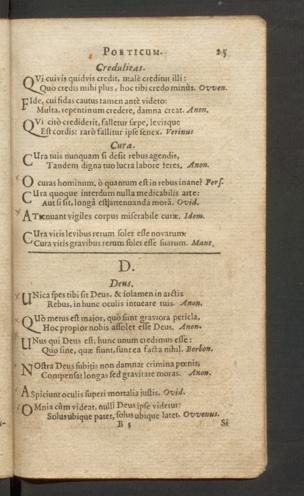 POETICUM. 25
Credulitas.
QVi cuivis quidvis credit, malè creditur illi:
Quo credis mihi plus, hoc tibi credo minùs. Ovven.
FIde, cui fidas cautus tamen antè videto:
Multa, repentinum credere, damna creat. Anon.
QVi citò crediderit, falletur sæpe, levisque
Est cordis: rarò fallitur ipse senex. Verinus
Cura.
CUra tuis nunquam si desit rebus agendis,
Tandem digna tuo lucra labore feres. Anon.
O curas hominum, ò quantum est in rebus inane! Pers.
CUra quoque interdum nulla medicabilis arte:
Aut si sit, longâ est extenuanda morâ. Ovid.
ATtenuant vigiles corpus miserabile curæ. Idem.
CUra viris levibus rerum solet esse novarum:
Cura viris gravibus rerum solet esse suarum. Mant.
D.
Deus.
UNica spes tibi sit Deus, & solamen in arctis
Rebus, in hunc oculis intueare tuis. Anon.
QUò metus est major, quò sunt graviora pericla,
Hoc propior nobis assolet esse Deus. Anon.
UNus qui Deus est, hunc unum credimus esse:
Quo sine, quæ sunt, sunt ea facta nihil. Borbon.
NOstra Deus subitis non damnat crimina pœnis,
Compensat longas sed gravitate moras. Anon.
ASpiciunt oculis superi mortalia justis. Ovid.
OMnia cùm videat, nulli Deus ipse videtur:
Solus ubique patet, solus ubique latet. Ovvenus.
B 5 Si